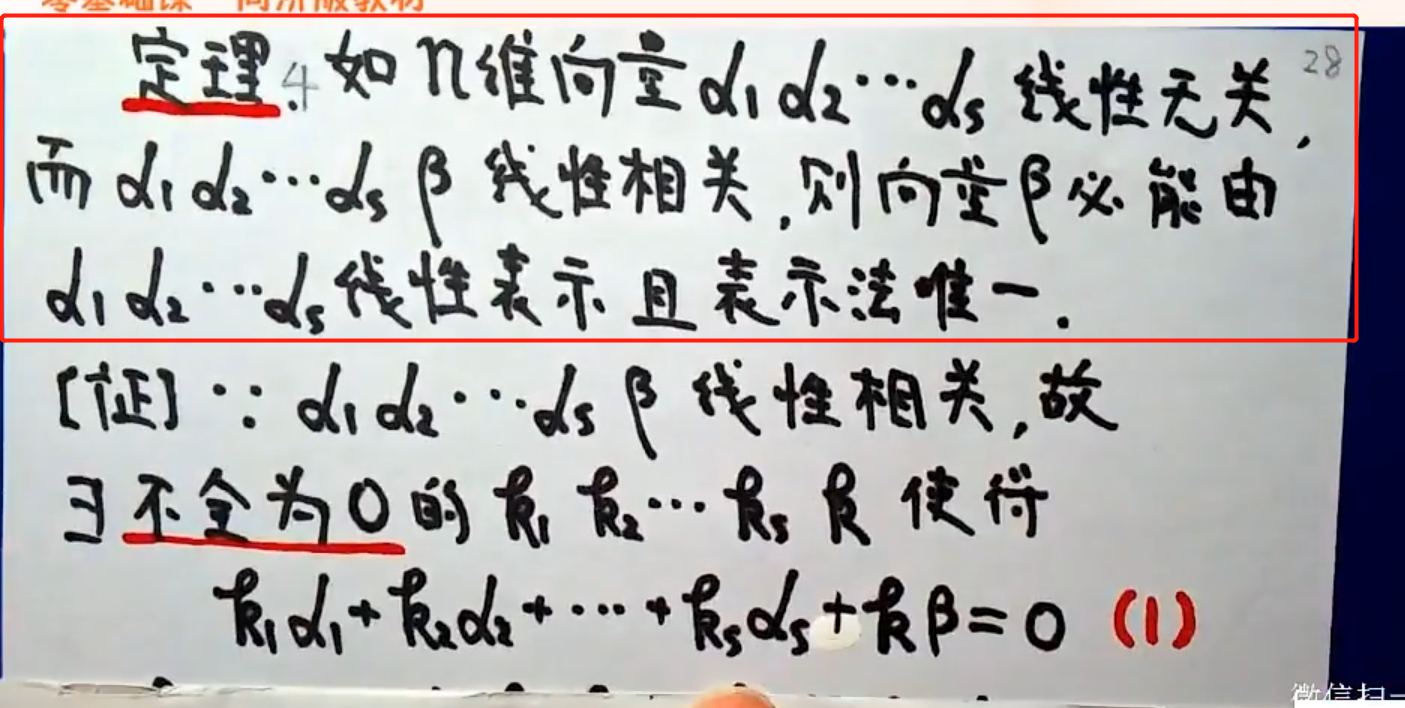 零基础课 高阶版教材
定理4. 如n维向量α₁α₂…αₛ线性无关, 28
而α₁α₂…αₛβ线性相关,则向量β必能由
α₁α₂…αₛ线性表示且表示法唯一.
[证]∵α₁α₂…αₛβ线性相关,故
∃不全为0的k₁k₂…kₛk使得
k₁α₁+k₂α₂+…+kₛαₛ+kβ=0 (1)
微信扫一